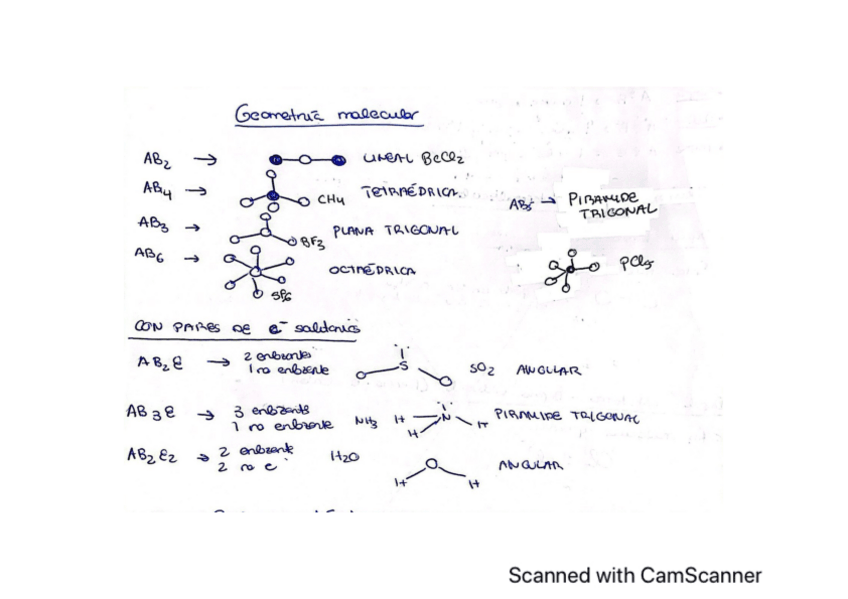 Geometria molecular
AB2 → LINEAL BeCl2
AB4 → CH4 TETRAÉDRICA
AB3 → BF3 PLANA TRIGONAL
AB6 → SF6 OCTAÉDRICA
AB5 → PIRAMIDE
TRIGONAL
PCl5
CON PARES DE e- solitarios
AB2E → 2 enlazantes
1 no enlazante
S SO2 ANGULAR
AB3E → 3 enlazante
1 no enlazante NH3 H N H
H PIRAMIDE TRIGONAL
AB2E2 → 2 enlazante
2 no e H2O O
H H ANGULAR
Scanned with CamScanner